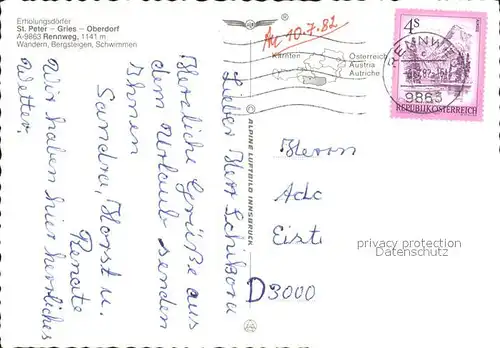 Erholungsdörfer
St. Peter – Gries – Oberdorf
A-9863 Rennweg, 1141 m
Wandern, Bergsteigen, Schwimmen
An 10.7.82
Kärnten
Österreich
Austria
Autriche
4S
RENNWEG
9863
REPUBLIK ÖSTERREICH
Lieber Herr Schikora
Herzliche Grüße aus
dem Urlaub senden
Ihnen
Sandra, Horst u.
Renate
Wir haben hier herrliches
Wetter.
ALPINE LUFTBILD INNSBRUCK
Herrn
D3000
privacy protection
Datenschutz